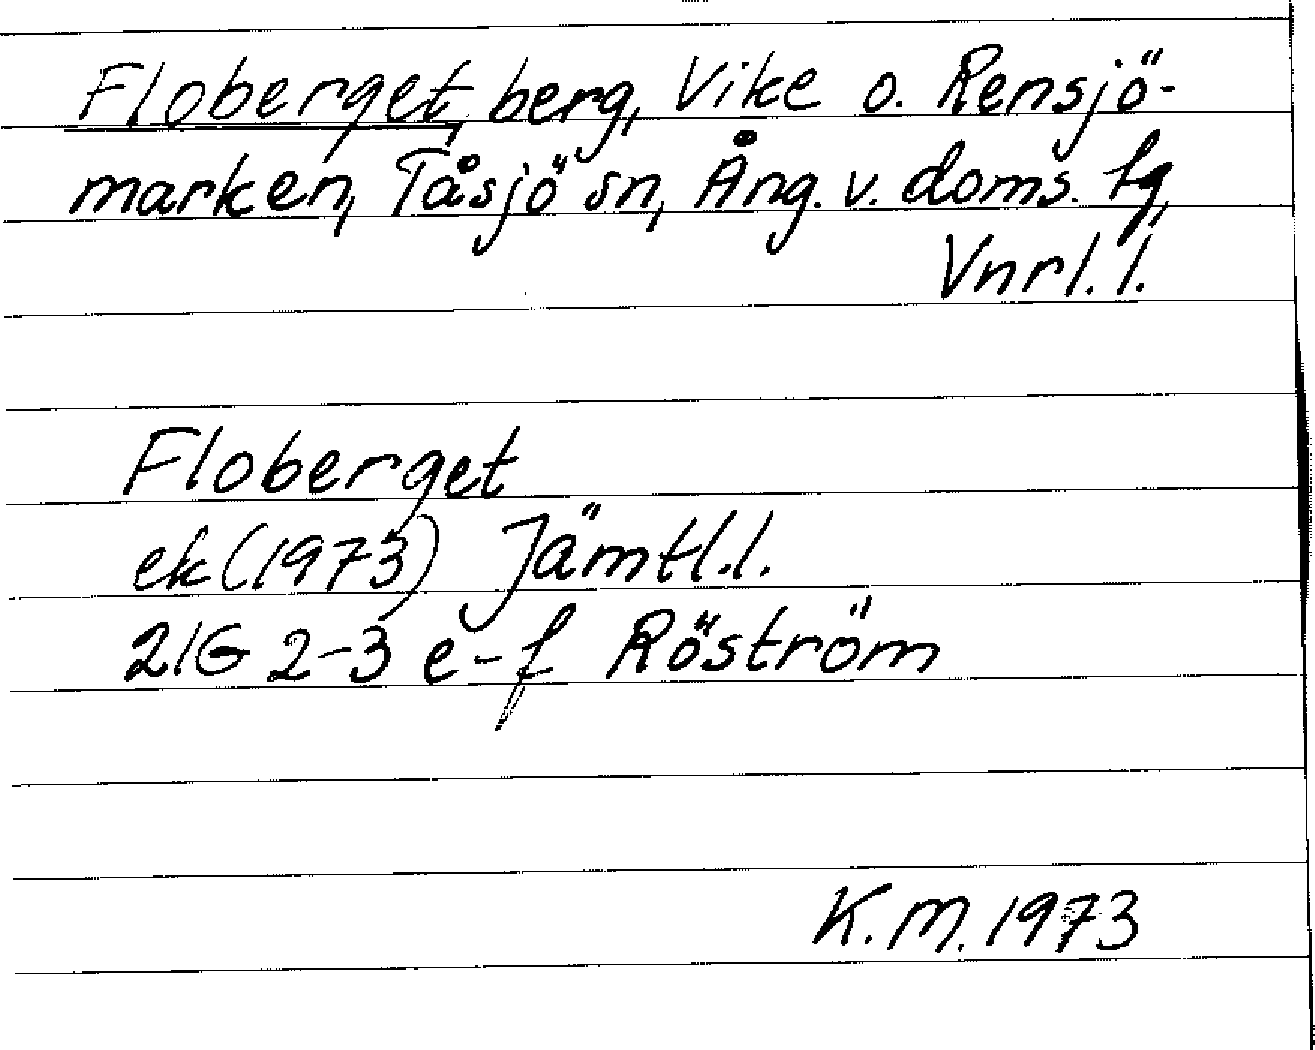 Floberget, berg, Vike o. Rensjö-
marken, Tåsjö sn, Ång. v. doms. tg,
Vnrl. l.
Floberget
ek (1973) Jämtl. l.
21G 2-3 e-f Röström
K. M. 1973